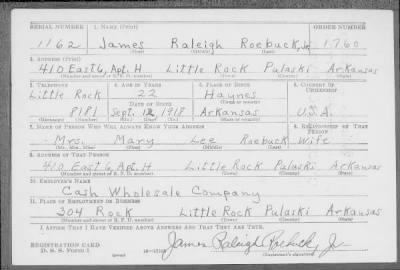 SERIAL NUMBER 1. NAME (Print) ORDER NUMBER
1162 James Raleigh Roebuck, Jr 1760
(First) (Middle) (Last)
2. ADDRESS (Print)
410 East 6, Apt. H Little Rock Pulaski Arkansas
(Number and street or R. F. D. number) (Town) (County) (State)
3. TELEPHONE 4. AGE IN YEARS 5. PLACE OF BIRTH 6. COUNTRY OF CITIZENSHIP
Little Rock 22 Haynes
(Town or county)
DATE OF BIRTH
8181 Sept. 12, 1918 Arkansas U.S.A.
(Exchange) (Number) (Mo.) (Day) (Yr.) (State or country)
7. NAME OF PERSON WHO WILL ALWAYS KNOW YOUR ADDRESS 8. RELATIONSHIP OF THAT PERSON
Mrs. Mary Lee Roebuck Wife
(Mr., Mrs., Miss) (First) (Middle) (Last)
9. ADDRESS OF THAT PERSON
410 East 6, Apt. H Little Rock Pulaski Arkansas
(Number and street or R. F. D. number) (Town) (County) (State)
10. EMPLOYER'S NAME
Cash Wholesale Company
11. PLACE OF EMPLOYMENT OR BUSINESS
304 Rock Little Rock Pulaski Arkansas
(Number and street or R. F. D. number) (Town) (County) (State)
I AFFIRM THAT I HAVE VERIFIED ABOVE ANSWERS AND THAT THEY ARE TRUE.
REGISTRATION CARD
D. S. S. Form 1 James Raleigh Roebuck, Jr
(over) (Registrant's signature)